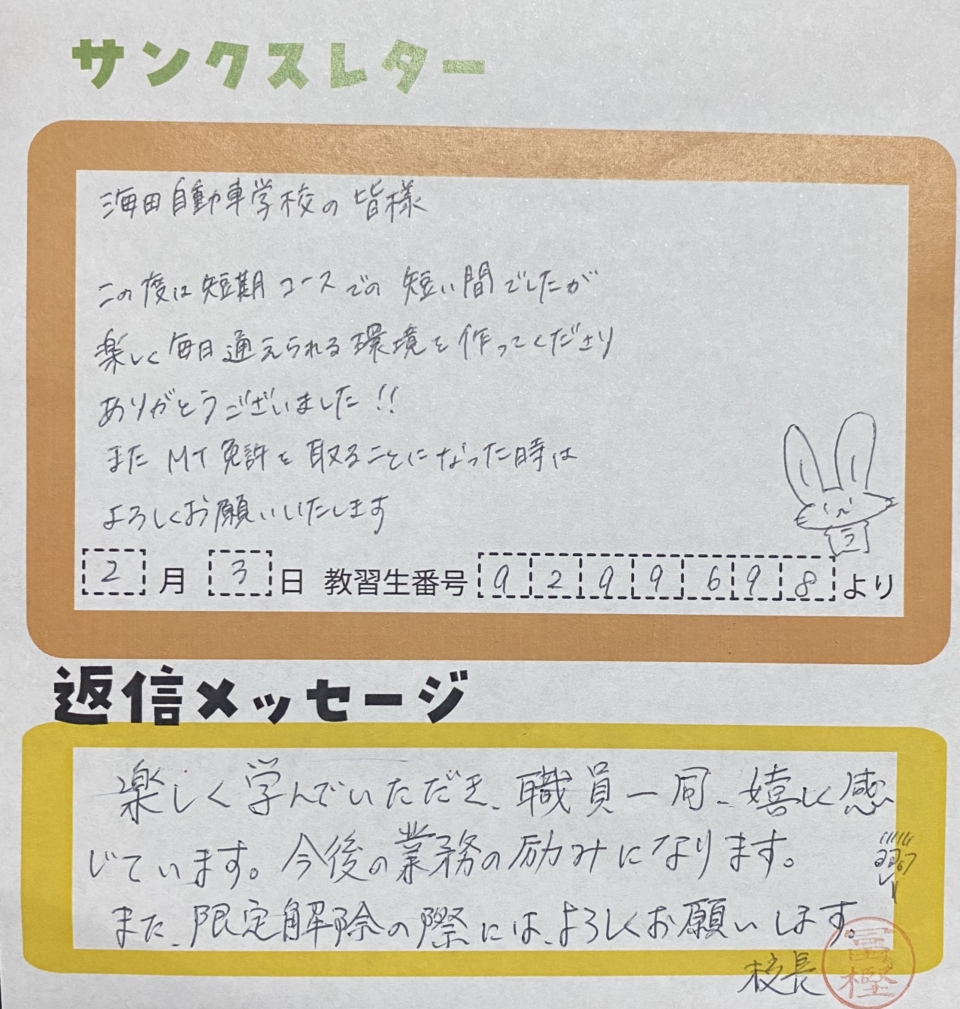 サンクスレター
海田自動車学校の皆様
この度は短期コースでの短い間でしたが
楽しく毎日通えられる環境を作ってくださり
ありがとうございました!!
また MT免許を取ることになった時は
よろしくお願いいたします
2月3日 教習生番号 9299698より
返信メッセージ
楽しく学んでいただき、職員一同、嬉しく感
じています。今後の業務の励みになります。
また、限定解除の際には、よろしくお願いします。
校長 冨樫